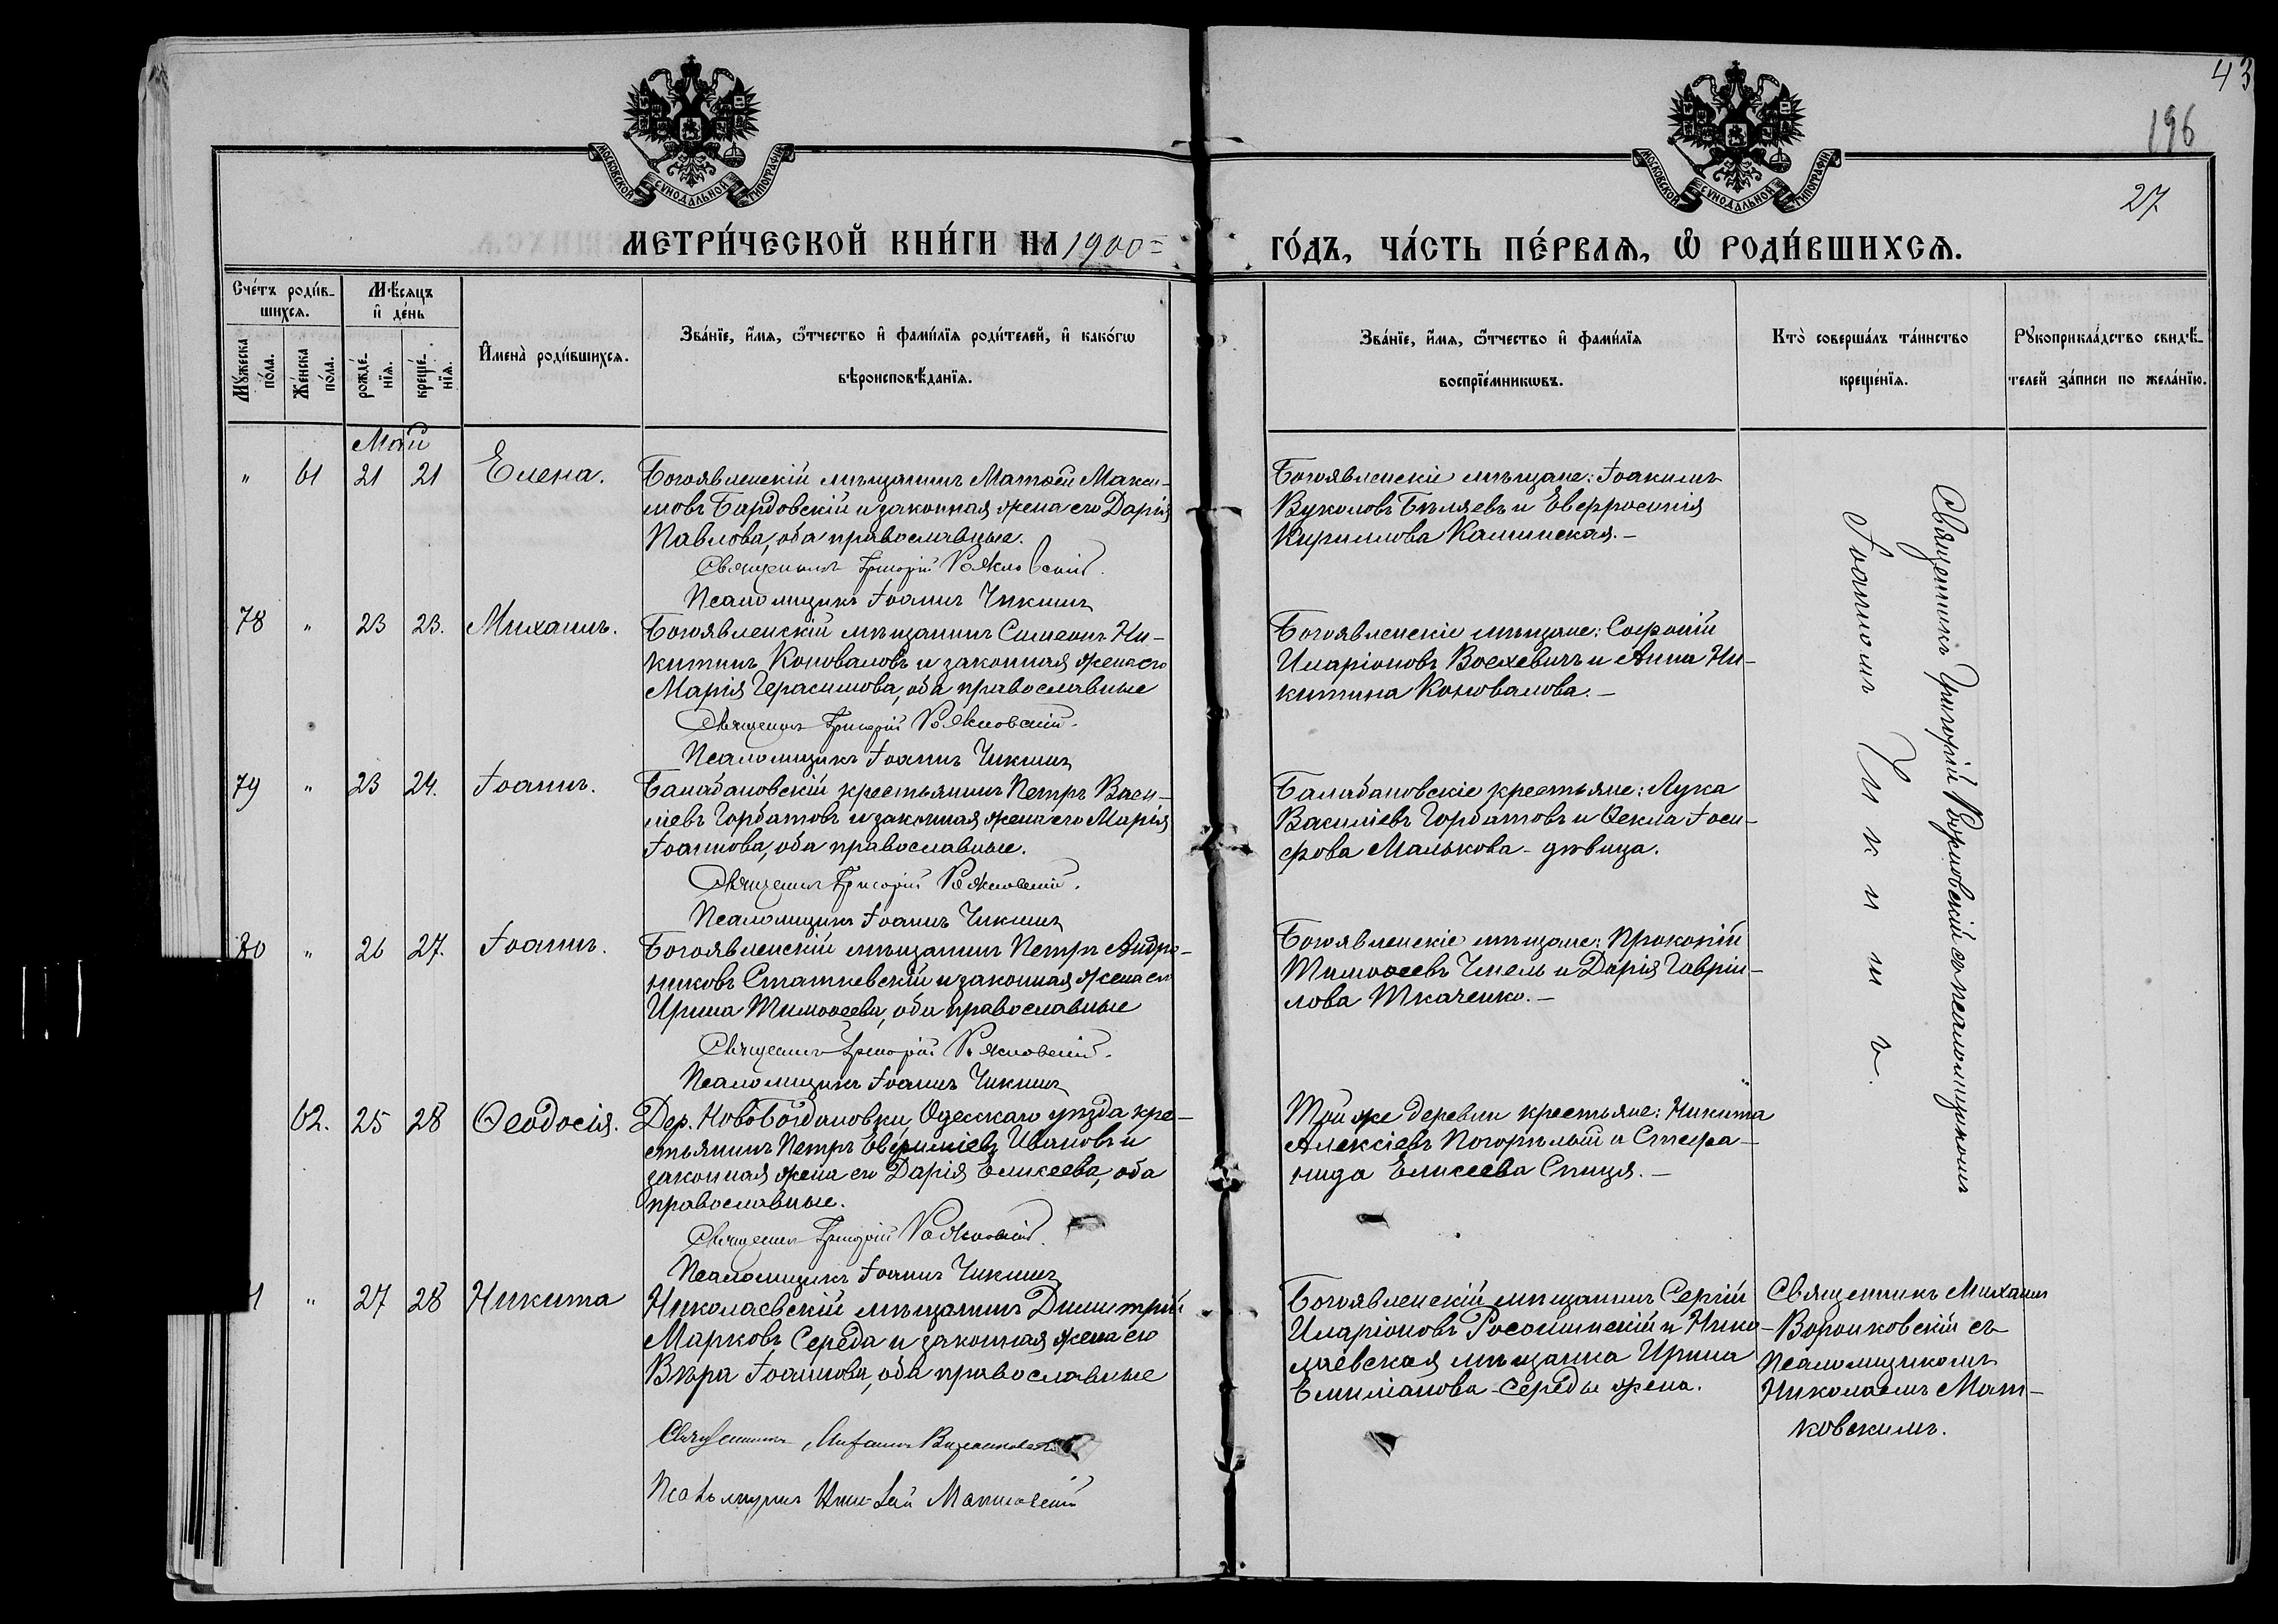 43
196
27
МОСКОВСКОЙ СѴНОДАЛЬНОЙ ТИПОГРАФІИ
МОСКОВСКОЙ СѴНОДАЛЬНОЙ ТИПОГРАФІИ
МЕТРИ́ЧЕСКОЙ КНИ́ГИ НА 1900 =
ГО́ДЪ, ЧА́СТЬ ПЕ́РВАѦ, Ѡ҆ РОДИ́ВШИХСѦ.
Сче́тъ роди́в-
шихсѧ.
Мꙋ́жеска по́ла.
Же́нска по́ла.
Мѣ́сѧцъ
и҆ де́нь
рожде́-
нїѧ.
креще́-
нїѧ.
И҆мена̀ роди́вшихсѧ.
Зва́нїе, и҆́мѧ, ѻ҆́тчество и҆ фами́лїѧ роди́телей, и҆ како́гѡ
вѣроисповѣ́данїѧ.
Зва́нїе, и҆́мѧ, ѻ҆́тчество и҆ фами́лїѧ
воспрїе́мникѡвъ.
Кто̀ соверша́лъ та́инство
креще́нїѧ.
Рꙋкоприкла́дство свидѣ́-
телей за́писи по жела́нїю.
Май
" 61 21 21 Елена.
Богоявленскій мѣщанинъ Матѳей Макси-
мовъ Бардовскій и законная жена его Дарія
Павлова, оба православные.
Священникъ Григорій
Псаломщикъ Іоаннъ Чикминъ
Богоявленскіе мѣщане: Іоакимъ
Вуколовъ Бѣляевъ и Евфросинія
Кириллова Калинская. –
78 " 23 23. Михаилъ.
Богоявленскій мѣщанинъ Симеонъ Ни-
китинъ Коновалов и законная жена его
Марія Герасимова, оба православные
Священникъ Григорій
Псаломщикъ Іоаннъ Чикминъ
Богоявленскіе мѣщане: Софоній
Иларіоновъ и Анна Ни-
китина Коновалова. –
79 " 23 24. Іоаннъ.
Балабановскій крестьянинъ Петръ Васи-
ліевъ Горбатовъ и законная жена его Марія
Іоаннова, оба православные.
Священникъ Григорій
Псаломщикъ Іоаннъ Чикминъ
Балабановскіе крестьяне: Лука
Василіевъ Горбатовъ и Ѳекла Іоси-
фова Малькова - дѣвица.
80 " 26 27. Іоаннъ.
Богоявленскій мѣщанинъ Петръ Андро-
никовъ Статкевскій и законная жена его
Ирина Тимоѳеева, оба православные
Священникъ Григорій
Псаломщикъ Іоаннъ Чикминъ
Богоявленскіе мѣщане: Прокопій
Тимоѳеевъ Чмель и Дарія Гаврiи-
лова Ткаченко. –
62. 25 28 Ѳеодосія.
Дер. НовоБогдановки, Одесскаго уѣзда кре-
стьянинъ Петръ Евфиміевъ Ивановъ и
законная жена его Дарія Елисеева, оба
православные.
Священникъ Григорій
Псаломщикъ Іоаннъ Чикминъ
Той же деревни крестьяне: Никита
Алексіевъ Погорѣлый и Стефа-
нида Елисеева Спиця. –
1 " 27 28 Никита
Николаевскій мѣщанинъ Димитрій
Марковъ Середа и законная жена его
Вѣра Іоаннова, оба православные
Священникъ Михаилъ Воронковскій
Псаломщикъ Николай Матковскій
Богоявленскій мѣщанинъ Сергій
Иларіоновъ и Нико-
лаевская мѣщанка Ирина
Емиліанова - Середы жена.
Священникъ Михаилъ
Воронковскій съ
псаломщикомъ
Николаемъ Мат-
ковскимъ.
Священникъ Григорій съ псаломщикомъ
Іоанномъ Чикминымъ.